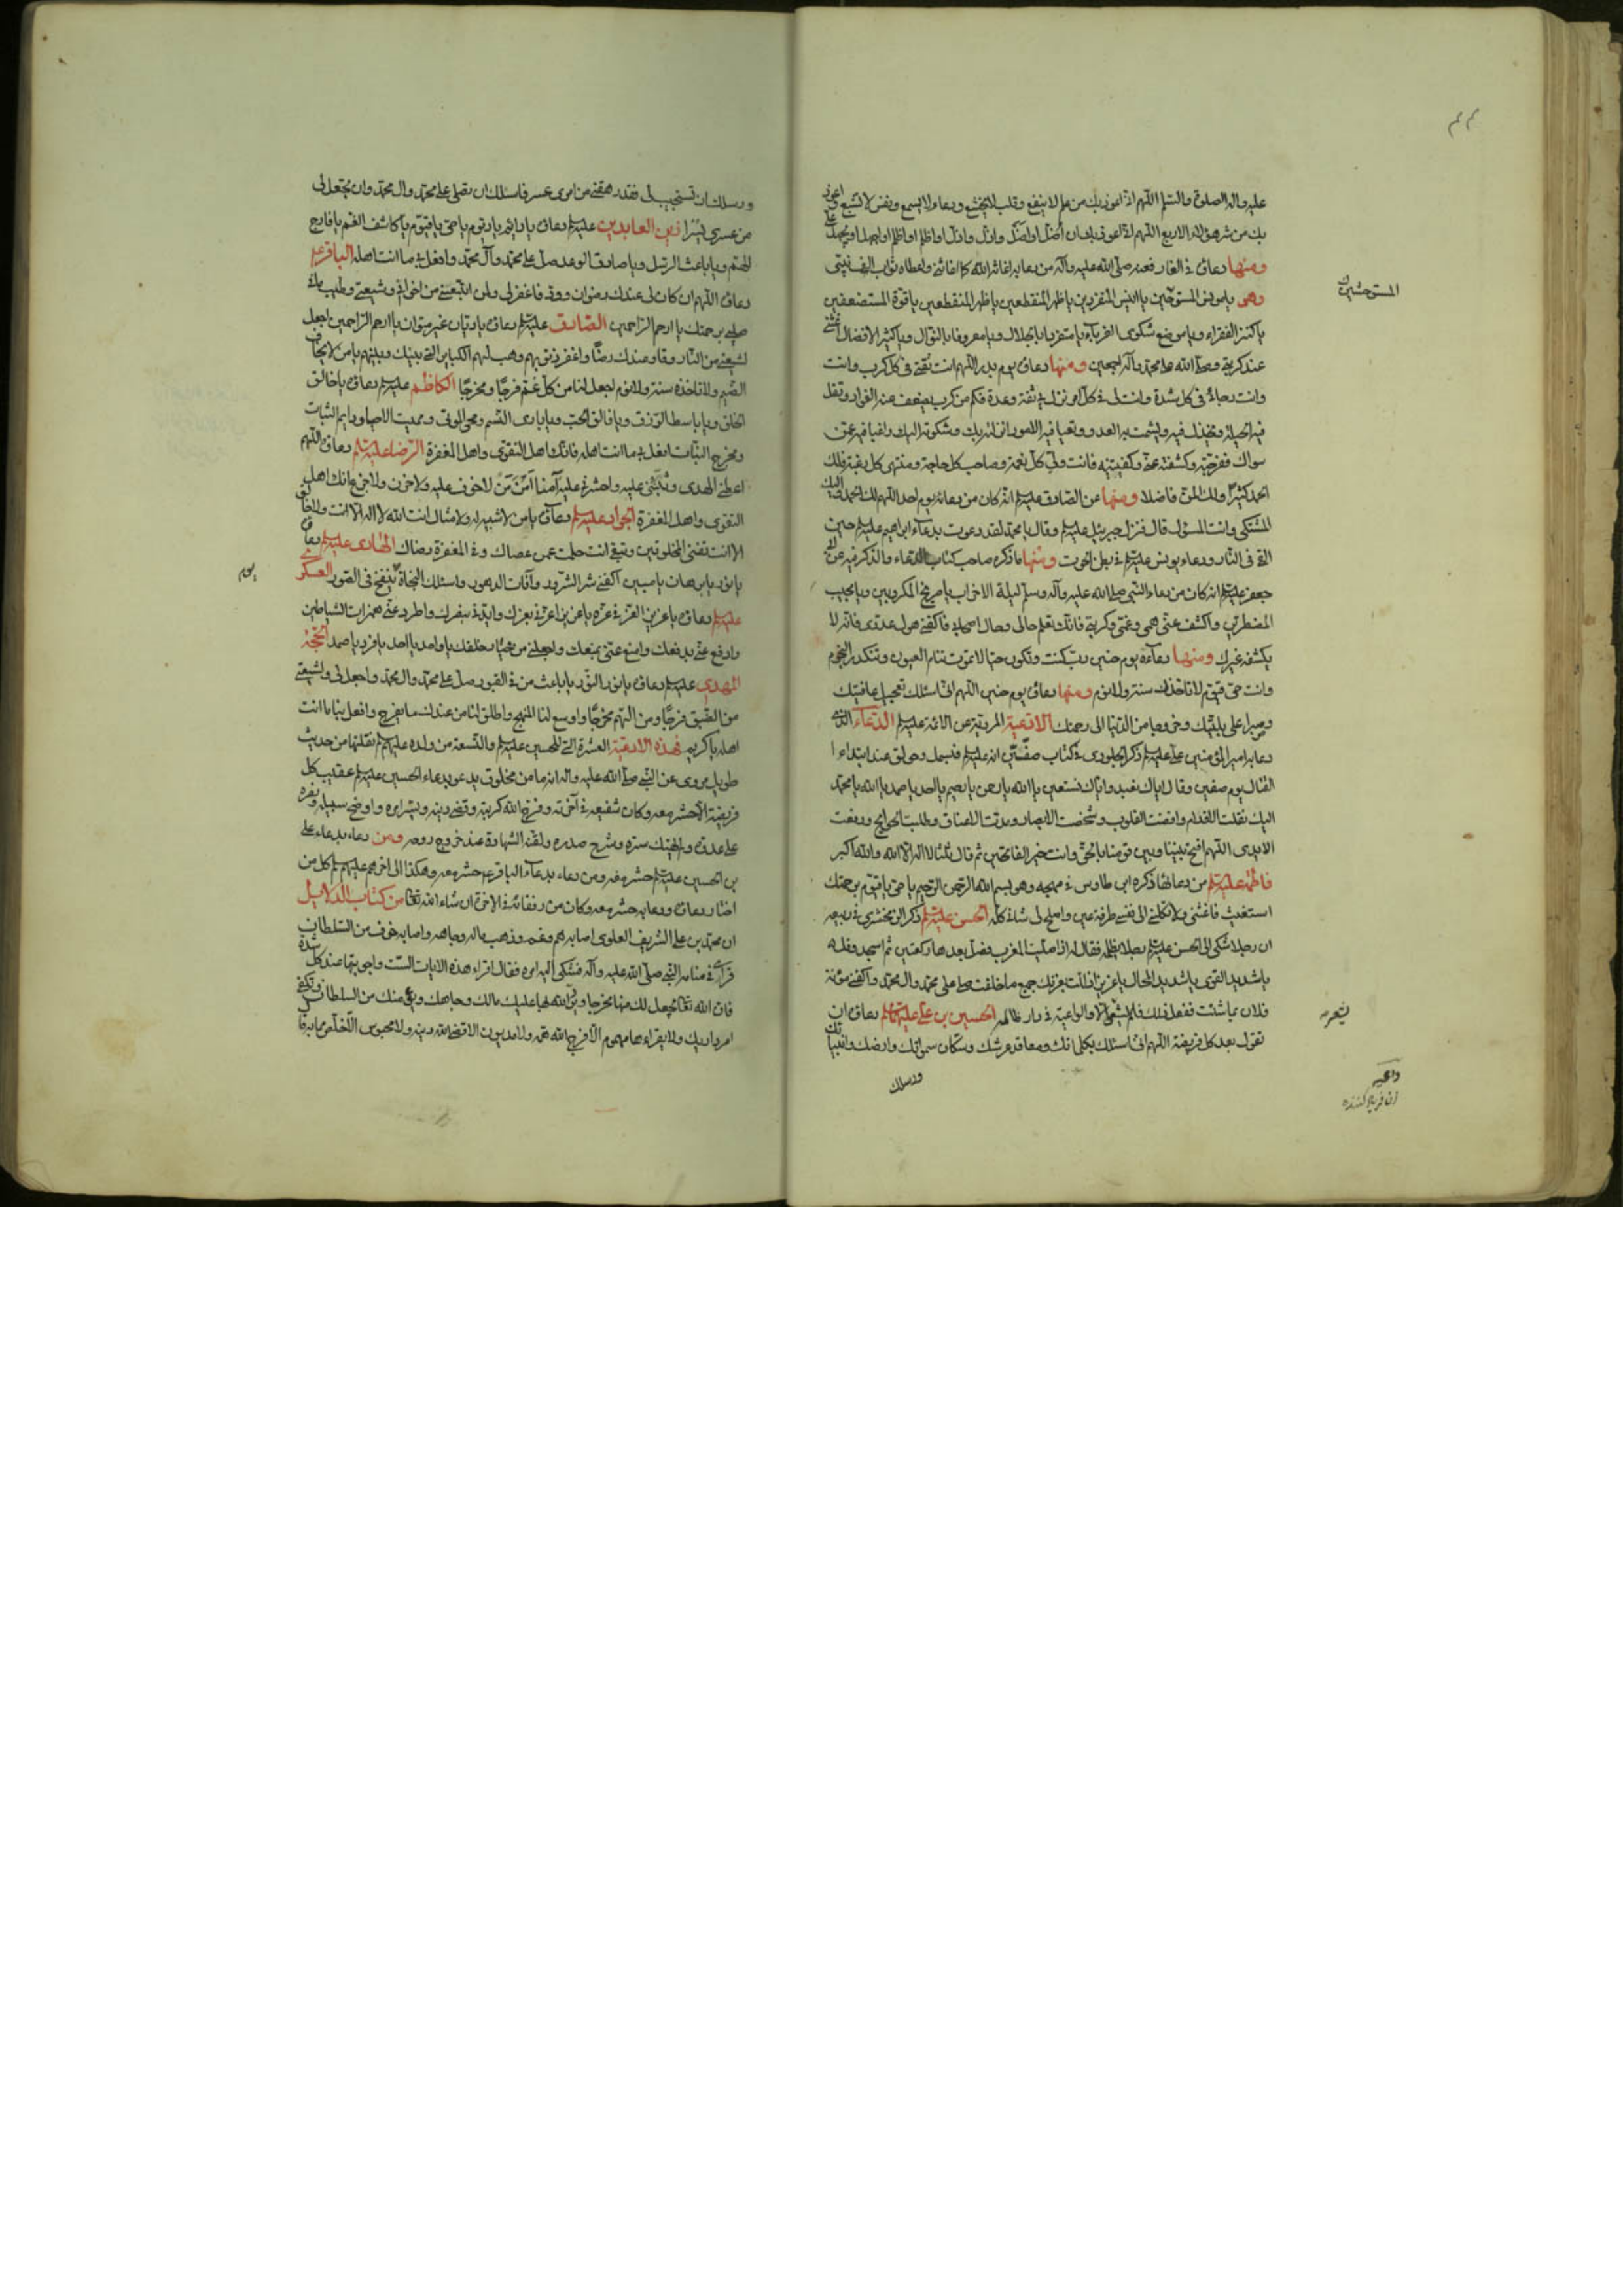 عليه واله الصلوة والسلم اللهم انى اعوذ بك من علم لا ينفع وقلب لا يخشع ودعاء لا يسمع ونفس لا تشبع واعوذ
بك من شر هؤلاء الاربع اللهم انى اعوذ بك ان أضلّ او اضلّ واذلّ اواظلم او اظلم او اجهل او يجهل علىّ
ومنها دعاؤه فى الغار فعنه صلى الله عليه وآله من دعا به اغاثه الله كما اغاثنى واعطاه ثواب الف نبى
وهى يا مونس المستوحّين يا انيس المتفردين يا ظهر المنقطعين يا ظهر المنقطعين يا قوة المستضعفين
المستوحشين
يا كنز الفقراء ويا موضع شكوى الغرباء ويا متفردا بالجلال ويا معروفا بالنوال ويا كثير الافضال اغثنى
عند كربتى وصلى الله على محمد وآله اجمعين ومنها دعاؤه يوم بدر اللهم انت ثقتى فى كل كرب وانت
وانت رجائى فى كل شدة وانت لى فى كل امر نزل بى ثقة وعدة فكم من كرب يضعف عنه الفؤاد وتقل
فيه الحيلة ويخذل فيه ويشمت به العدو وتعيا فيه الامور انزلته بك وشكوته اليك راغبا فيه عمّن
سواك ففرجته وكشفته عنى وكفيتنيه فانت ولى كل نعمة وصاحب كل حاجة ومنتهى كل رغبة فلك
الحمد كثيرًا ولك المن فاضلا ومنها عن الصادق عليه السلم انه كان من دعائه يوم احد اللهم لك الحمد واليك
المشتكى وانت المستعان قال فنزل جبرئيل عليه السلم وقال يا محمد لقد دعوت بدعاء ابراهيم عليه السلم حين
القى فى النار ودعاء يونس عليه السلم فى بطن الحوت ومنها ما ذكره صاحب كتاب الدعاء والذكر فيه عن
جعفر عليه السلم انه كان من دعاء النبى صلى الله عليه وآله وسلم ليلة الاحزاب يا صريخ المكروبين ويا مجيب
المضطرين واكشف عنى همى وغمى وكربتى فانك تعلم حالى وحال اصحابى فاكفنى هول عدوى فانه لا
يكشفه غيرك ومنها دعاؤه يوم حنين رب كنت وتكون حيا لا تموت تنام العيون وتنكدر النجوم
وانت حىّ قيّوم لا تاخذك سنة ولا نوم ومنها دعاؤه يوم حنين اللهم انى اسئلك تعجيل عافيتك
وصبرا على بليتك وخروجا من الدنيا الى رحمتك الادعية المروية عن الائمة عليهم السلم الدعاء الذى
دعا به امير المؤمنين على عليه السلم ذكر الجلودى فى كتاب صفّين انه عليه السلم فبسمل وحولق عند ابتداء
القتال يوم صفين وقال اياك نعبد واياك نستعين يا الله يا رحمن يا رحيم يا احد يا صمد يا الله يا محمد
اليك نقلت الاقدام وافضت القلوب وشخصت الابصار ومدت الاعناق وطلبت الحوائج ورفعت
الايدى اللهم افتح بيننا وبين قومنا بالحق وانت خير الفاتحين ثم قال ثلثا لا اله الا الله والله اكبر
فاطمة عليها السلم من دعائها ذكره ابن طاوس فى مهجه وهو بسم الله الرحمن الرحيم يا حىّ يا قيّوم برحمتك
استغيث فاغثنى ولا تكلنى الى نفسى طرفة عين واصلح لى شانى كله الحسن عليه السلم ذكر الزمخشرى فى ربيعه
ان رجلا شكى الى الحسن عليه السلم رجلا يظلمه فقال له اذا صليت المغرب فصل بعدها ركعتين ثم اسجد وقل
يا شديد القوى يا شديد المحال يا عزيز اذللت بعزتك جميع من خلقت صل على محمد وال محمد واكفنى مؤنة
فلان بما شئت ففعل ذلك فلم يشعر الا والواعية فى دار ظالمه الحسين بن على عليهما السلم دعاؤه ان
تقول بعد كل فريضة اللهم انى اسئلك بكلماتك ومعاقد عرشك وسكان سمواتك وارضك وانبيائك
ورسلك
ورسلك ان تستجيب لى فقد رهقنى من امرى عسر فاسئلك ان تصلى على محمد وال محمد وان تجعل لى
من عسرى يسرًا زين العابدين عليه السلم دعاؤه يا دائم يا ديّوم يا حىّ يا قيّوم يا كاشف الغم يا فارج
الهمّ ويا باعث الرسل ويا صادق الوعد صلّ على محمد وآل محمد وافعل بى ما انت اهله الباقر ع
دعاؤه اللهم ان كان لى عندك رضوان وودّ فاغفر لى ولمن اتبعنى من اخوانى وشيعتى وطيب ما فى
صلبى برحمتك يا ارحم الراحمين الصادق عليه السلم دعاؤه يا ديّان غير متوان يا ارحم الراحمين اجعل
لشيعتى من النار وقاء وعندك رضًا واغفر ذنوبهم وهب لهم الكبائر التى بينك وبينهم يا من لا يخاف
الضيم ولا تاخذه سنة ولا نوم اجعل لنا من كلّ غمّ فرجًا ومخرجًا الكاظم عليه السلم دعاؤه يا خالق
الخلق ويا باسط الرزق ويا فالق الحب ويا بارى النسم ومحى الموتى ومميت الاحياء ودايم الثبات
ومخرج النبات افعل بى ما انت اهله فانك اهل التقوى واهل المغفرة الرضا عليه السلم دعاؤه اللهم
اعطنى الهدى وثبّتنى عليه واحشرنى عليه آمنا أمن من لا خوف عليه ولا حزن ولا جزع انك اهل
التقوى واهل المغفرة الجواد عليه السلم دعاؤه يا من لا شبيه له ولا مثال انت الله لا اله الا انت ولا خالق
الا انت تفنى المخلوقين وتبقى انت حلمت عمن عصاك وفى المغفرة رضاك الهادى عليه السلم دعاؤه
يا نور يا برهان يا مبين اكفنى شر الشرور وآفات الدهور واسئلك النجاة ينفخ فى الصور العسكرى
يوم
عليه السلم دعاؤه يا عزيز العز فى عزه يا عزيز اعزنى بعزك وايدنى بنصرك واطرد عنى همزات الشياطين
وادفع عنى بدفعك وامنع عنى بمنعك واجعلنى من خيار خلقك يا واحد يا احد يا فرد يا صمد الحجّة
المهدى عليه السلم دعاؤه يا نور النور يا باعث من فى القبور صلّ على محمد وال محمد واجعل لى ولشيعتى
من الضيق فرجًا ومن الهمّ مخرجًا واوسع لنا المنهج واطلق لنا من عندك ما يفرج وافعل بنا ما انت
اهله يا كريم فهذه الادعية العشرة التى للحسين عليه السلم والتسعة من ولده عليهم السلم نقلتها من حديث
طويل مروى عن النبى صلى الله عليه واله انه ما من مخلوق يدعو بدعاء الحسين عليه السلم عقيب كل
فريضة الا حشر معه وكان شفيعه فى آخرته وفرج الله كربته وقضى دينه ويسر امره واوضح سبيله ونصره
على عدوه ولم يهتك ستره وشرح صدره ولقنه الشهادة عند خروج روحه ومن دعاء بدعاء على
بن الحسين عليه السلم حشر معه ومن دعاء بدعاء الباقر ع حشر معه وهكذا الى اخرهم عليهم السلم كل من
اختار دعاؤه ودعا به حشر معه وكان من رفقائه فى الاخرة ان شاء الله تعالى من كتاب الدلايل
ان محمد بن على الشريف العلوى اصابه هم وغم وذهب ماله وجاهه واصابه خوف من السلطان
فراى فى منامه النبى صلى الله عليه وآله فشكى اليه امره فقال اقراء هذه الايات الست واجوبتها عند كل شدة
فان الله تعالى يجعل لك منها مخرجا ويرد الله بها عليك مالك وجاهك وما منك من السلطان وتكفى
امر دارك ولا يقراءها مهموم الا فرج الله همه ولا مديون الا قضى الله دينه ولا محبوس الا خلص مما به